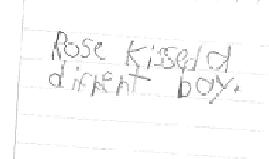 Rose kissed a
difrent boy.